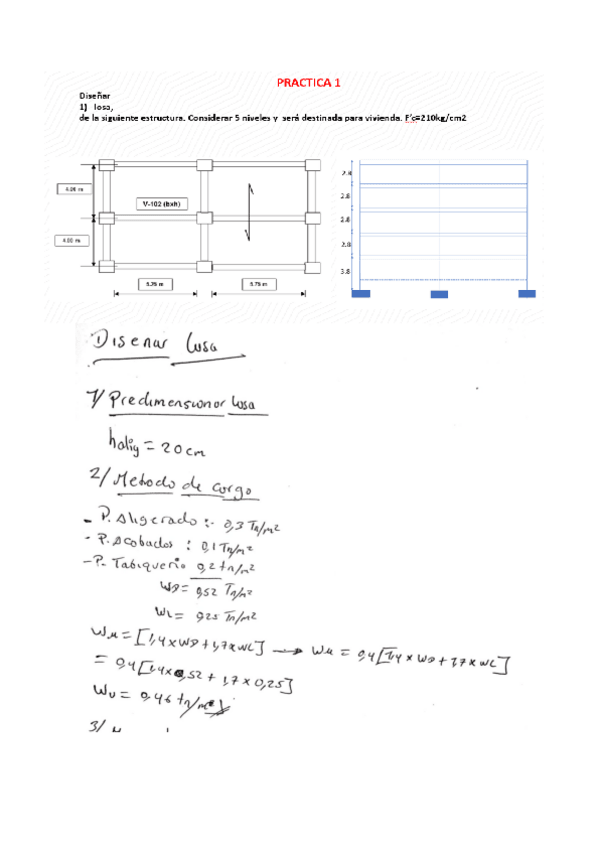 PRACTICA 1
Diseñar
1) losa,
de la siguiente estructura. Considerar 5 niveles y será destinada para vivienda. F'c=210kg/cm2
V-102 (bxh)
4.00 m
5.75 m
5.75 m
2.8
2.8
2.8
3.8
Diseñar Losa
1/ Predimensionar losa
halig = 20 cm
2/ Metodo de cargo
- P. Aligerado : 0,3 Tn/m²
- P. Acabados : 0,1 Tn/m²
- P. Tabiqueria 0,2 tn/m²
WD = 0,52 Tn/m²
WL = 0,25 Tn/m²
Wu = [1,4 x WD + 1,7 x WL] → Wu = 0,4 [1,4 x WD + 1,7 x WL]
= 0,4 [1,4 x 0,52 + 1,7 x 0,25]
Wu = 0,46 tn/m
3/